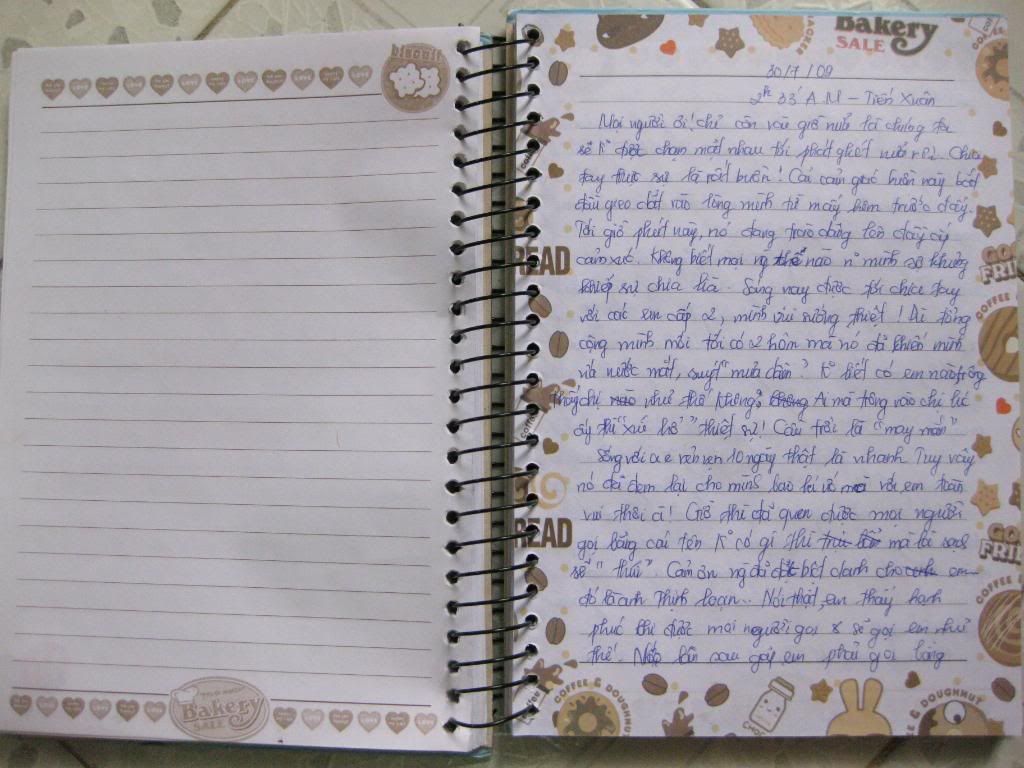 biscuit
Bakery
SALE
Bakery
SALE
READ
READ
COFFEE & DOUGHNUT
30/7/09
2h 33' A.M - Tiến Xuân
Mọi người ơi! chỉ còn vài giờ nữa là chúng ta
sẽ k° được chạm mặt nhau tới phát ghét nữa rồi. Chia
tay thực sự là rất buồn! Cái cảm giác buồn này bắt
đầu gieo dắt vào lòng mình từ mấy hôm trước đây.
Tới giờ phút này, nó đang trào dâng lên đầy cả
cảm xúc. Không biết mọi ng thế nào n° mình sợ khủng
khiếp sự chia lìa. Sáng nay được tới chia tay
với các em cấp 2, mình vui sướng thiệt! Dù tổng
cộng mình mới tới có 2 hôm mà nó đã khiến mình
rơi nước mắt, suýt "mưa dầm". K° biết có em nào trông
thấy chị như thế không? Ai mà trông vào chị lúc
ấy thì "xấu hổ" thiệt sự! Cầu trời là "may mắn"
Sống với a e vẻn vẹn 10 ngày thật là nhanh. Tuy vậy
nó đã đem lại cho mình bao kỉ với em toàn
vui thôi à! Giờ thì đã quen được mọi người
gọi bằng cái tên K° có gì thì mà lại
sẽ "thú". Cảm ơn ng đã đặt biệt danh cho em
đó là anh Thịnh loạn.. Nói thật, em thấy hạnh
phúc khi được mọi người gọi & sẽ gọi em như
thế. lần sau gặp em phải gọi bằng